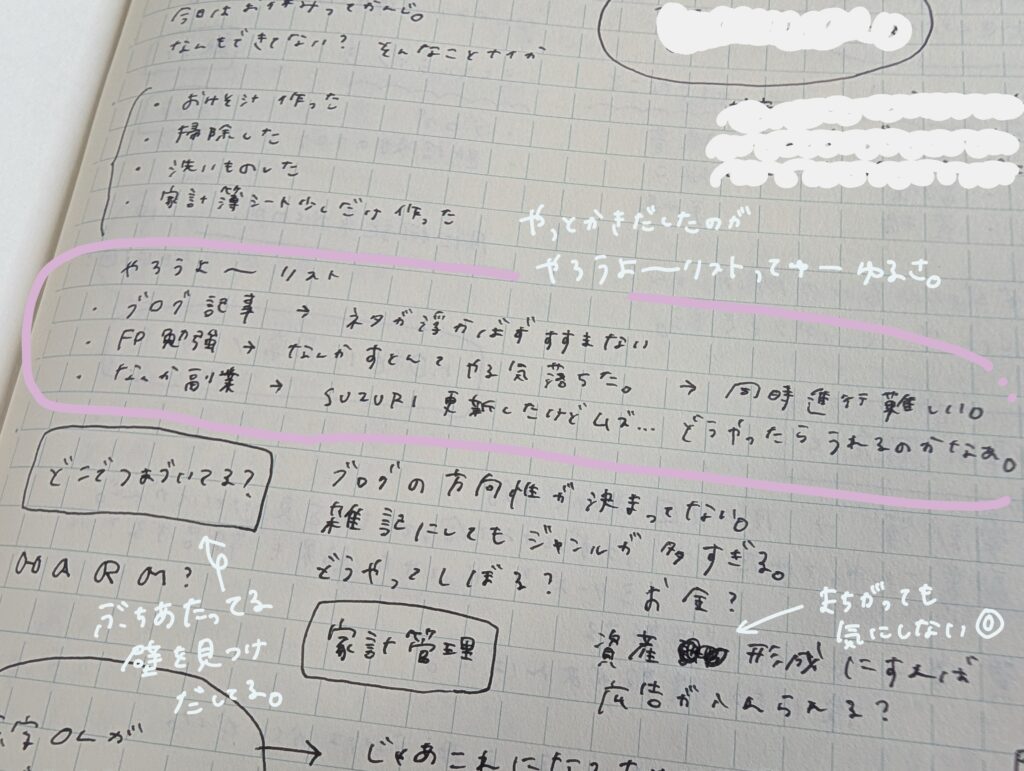 今日はお休みってかんじ。
なんもできてない? そんなことナイか
・おみそ汁 作った
・掃除した
・洗いものした
・家計簿シート少しだけ作った
やっとかきだしたのが
やろうよ〜リストってゆーゆるさ。
やろうよ〜 リスト
・ブログ記事 → ネタが浮かばずすすまない
・FP勉強 → なんかすとんてやる気落ちた。 → 同時進行難しい。
・なんか副業 → SUZURI 更新したけどムズ… どうやったらうれるのかなぁ。
どこでつまづいてる?
ブログの方向性が決まってない。
雑記にしてもジャンルが多すぎる。
どうやってしぼる?
HARM?
お金?
ぶちあたってる
壁を見つけ
だしてる。
家計管理
まちがっても
気にしない
資産 形成にすれば
広告が入れられる?
字OLが
→ じゃあこれになった